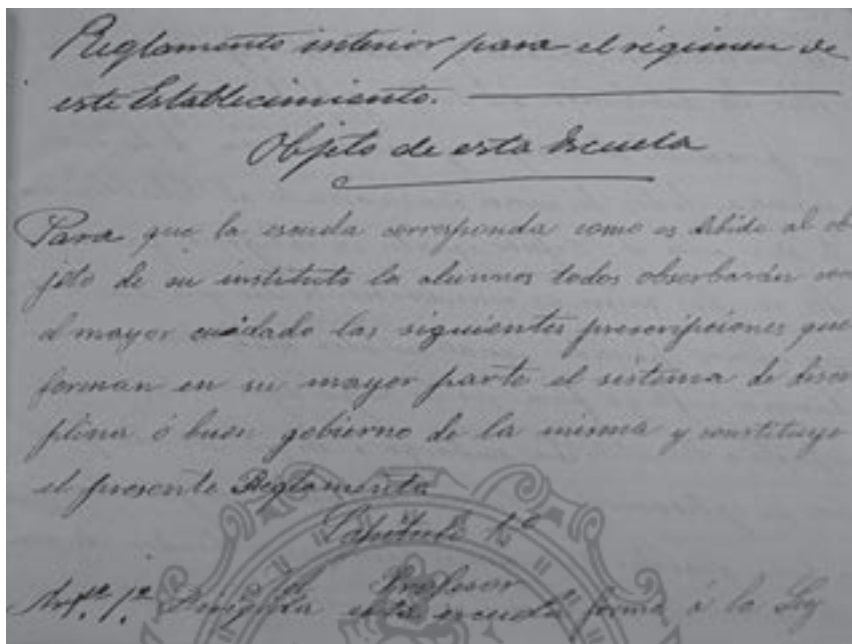 Reglamento interior para el régimen de
este Establecimiento.
Objeto de esta Escuela
Para que la escuela corresponda como es debido al ob
jeto de su instituto los alumnos todos observarán con
el mayor cuidado las siguientes prescripciones que
forman en su mayor parte el sistema de disci
plina ó buen gobierno de la misma y constituye
el presente Reglamento
Capitulo 1º
Profesor
Artº 1º esta escuela forma á la Ley